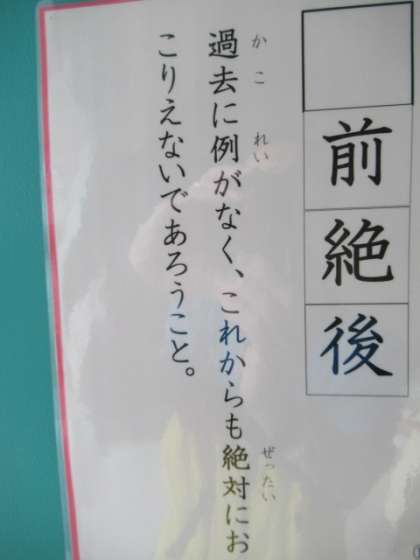 前絶後
過去に例がなく、これからも絶対にお
かこ れい ぜったい
こりえないであろうこと。